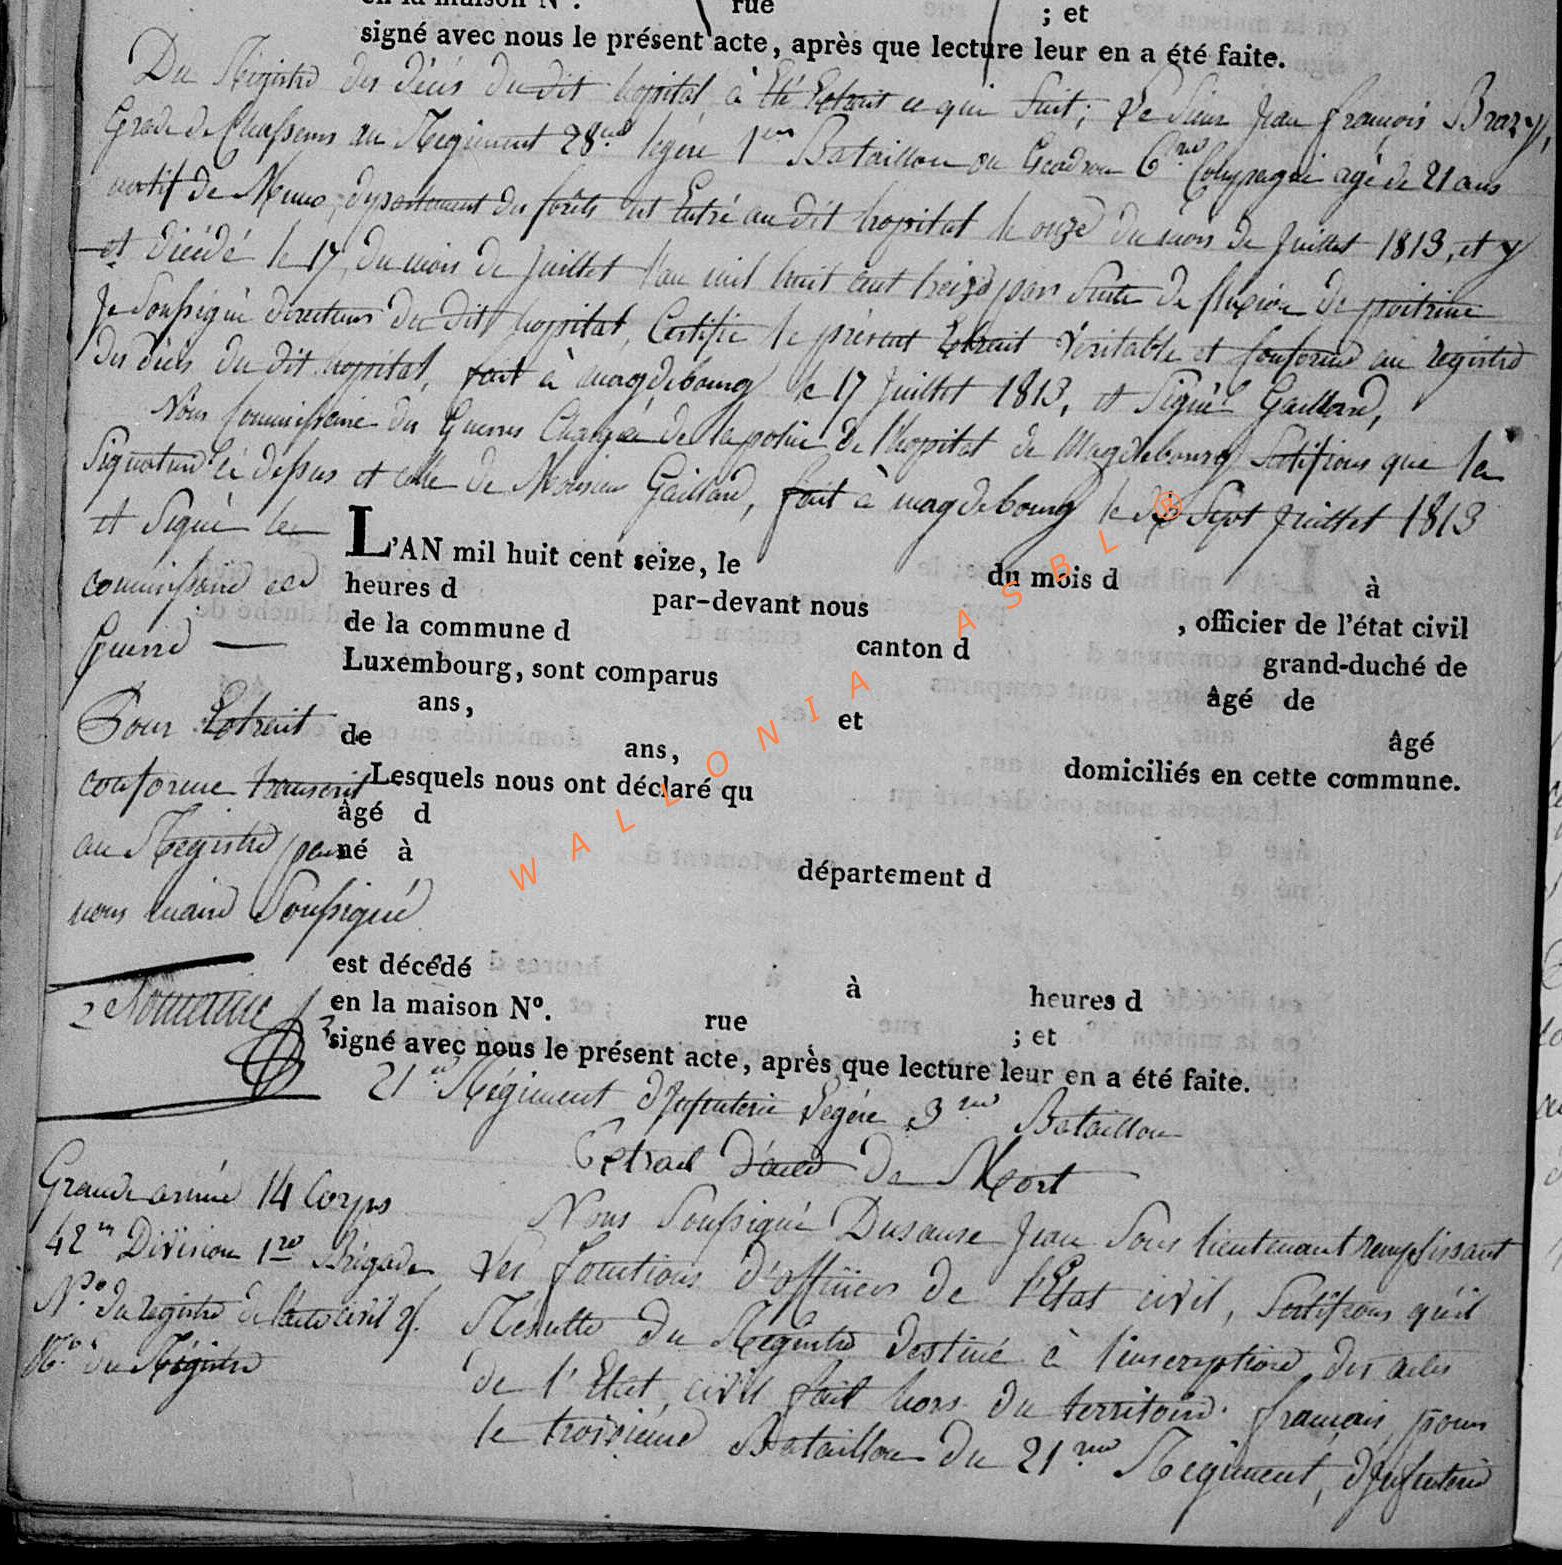 en la maison N°. rue ; et
signé avec nous le présent acte, après que lecture leur en a été faite.
Du Régistre des décès du dit hopital à été Extrait ce qui Suit; Le Sieur Jean françois Brazy,
Grade de Chasseurs au Régiment 28me légére 1er Bataillon ou Escadron 6me Compagnie agé de 21 ans
natif de département des forêts est Entré au dit hopital le onze du mois de Juillet 1813, et y
est décédé le 17 du mois de Juillet l'an mil huit cent treize par Suite de fluxion de poitrine
Je Soussigné directeur du dit hopital, Certifie le présent Extrait véritable et conforme au registre
des décès du dit hopital, fait à magdebourg le 17 Juillet 1813, et Signé Gaillard,
Nous Commissaire des Guerres Chargée de la police de l'hopital de Magdebourg Certifions que la
Signature ci dessus et celle de Monsieur Gaillard, fait à magdebourg le dix Sept Juillet 1813
et Signé le
commissaire des
Guerre —
Pour Extrait
conforme transcrit
au Régistre par
nous maire Soussigné
L'AN mil huit cent seize, le du mois d à
heures d par-devant nous , officier de l'état civil
de la commune d canton d grand-duché de
Luxembourg, sont comparus âgé de
ans, et âgé
de ans, domiciliés en cette commune.
Lesquels nous ont déclaré qu
âgé d
né à département d
est décédé à heures d
en la maison N°. rue ; et
signé avec nous le présent acte, après que lecture leur en a été faite.
WALLONIA ASBL ®
21me Régiment d'Infenterie Légére 3me Bataillon
Extrait d'acte de Mort
Grande armée 14 Corps
42me Division 1re Brigade
No du registre de l'acte civil 2f.
No du Régistre
Nous Soussigné Dusause Jean Sous lieutenant remplissant
Les fonctions d'officiers de l'Etat civil, Certifions qu'il
Résulte du Régistre destiné à l'inscription des actes
de l'Etat civil fait hors du territoire français, pour
le troisiéme Bataillon du 21me Régiment, d'Infenterie